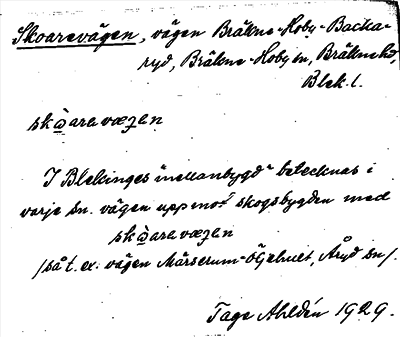 Skoarevägen, vägen Bräkne-Hoby-Backa-
ryd, Bräkne-Hoby sn, Bräkne hd,
Blek. l.
skɑ̀aravæʒen
I Blekinges "mellanbygd" betecknas i
varje sn. vägen uppmot skogsbygden med
skɑ̀aravæʒen
/så t. ex. vägen Mårserum-Öjehult, Åryd sn/.
Tage Ahldén 1929.